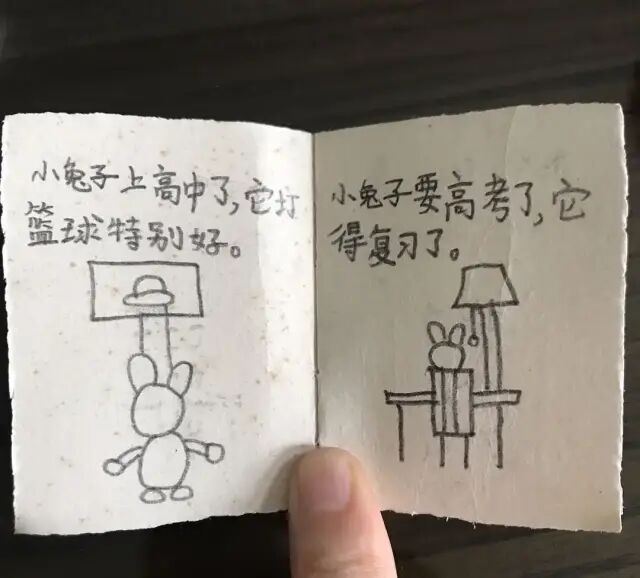 小兔子上高中了,它打
篮球特别好。
小兔子要高考了,它
得复习了。